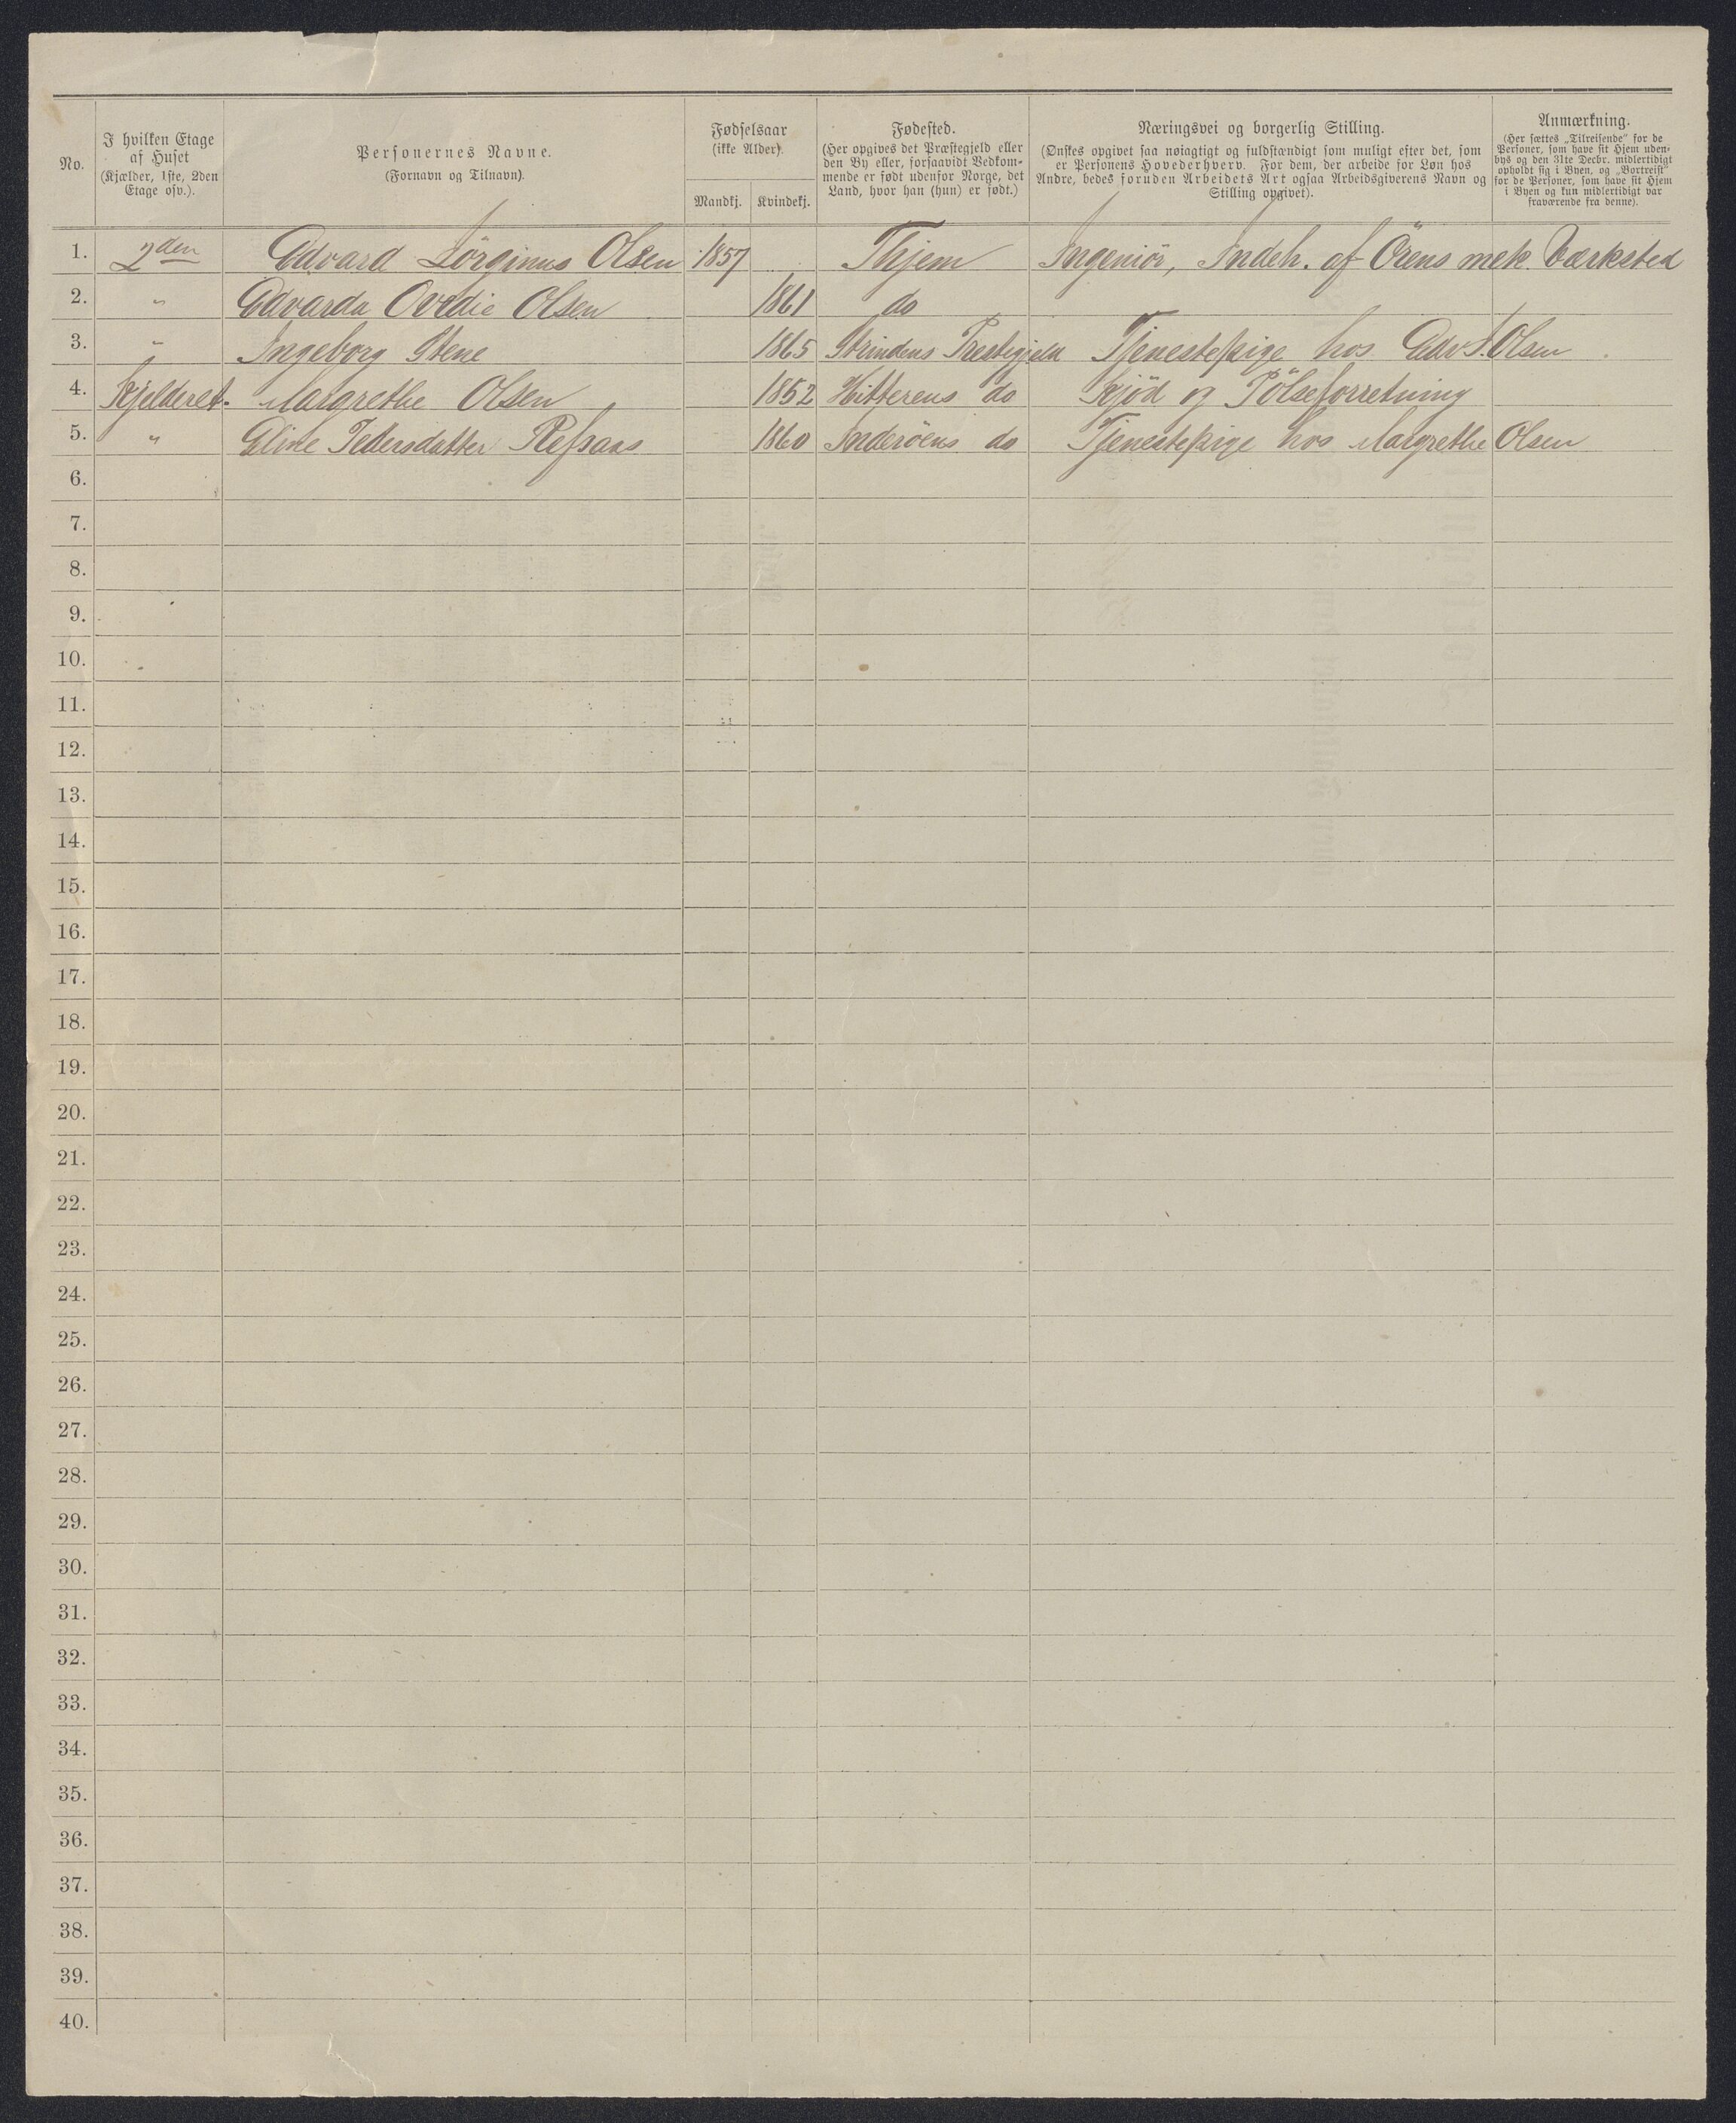 No.
I hvilken Etage
af Huset
(Kjælder, 1ste, 2den
Etage osv.).
Personernes Navne.
(Fornavn og Tilnavn).
Fødselsaar
(ikke Alder).
Mandkj. Kvindekj.
Fødested.
(Her opgives det Præstegjeld eller
den By eller, forsaavidt Vedkom-
mende er født udenfor Norge, det
Land, hvor han (hun) er født.)
Næringsvei og borgerlig Stilling.
(Ønskes opgivet saa nøiagtigt og fuldstændigt som muligt efter det, som
er Personens Hovederhverv. For dem, der arbeide for Løn hos
Andre, bedes foruden Arbeidets Art ogsaa Arbeidsgiverens Navn og
Stilling opgivet).
Anmærkning.
(Her sættes „Tilreisende" for de
Personer, som have sit Hjem uden-
bys og den 31te Decbr. midlertidigt
opholdt sig i Byen, og „Bortreist"
for de Personer, som have sit Hjem
i Byen og kun midlertidigt var
fraværende fra denne).
1. 2den Edvard Jörginus Olsen 1857 Thjem Ingeniör, Indeh. af Örens mek. Værksted
2. " Edvarda Ovedie Olsen 1861 do
3. " Ingeborg Stene 1865 Strindens Prestegjeld Tjenestepige hos Edv. J. Olsen
4. Kjelderet. Margrethe Olsen 1852 Hitterens do Kjöd og Pölseforretning
5. " Eline Pedersdatter Refsaas 1860 Inderöens do Tjenestepige hos Margrethe Olsen
6.
7.
8.
9.
10.
11.
12.
13.
14.
15.
16.
17.
18.
19.
20.
21.
22.
23.
24.
25.
26.
27.
28.
29.
30.
31.
32.
33.
34.
35.
36.
37.
38.
39.
40.